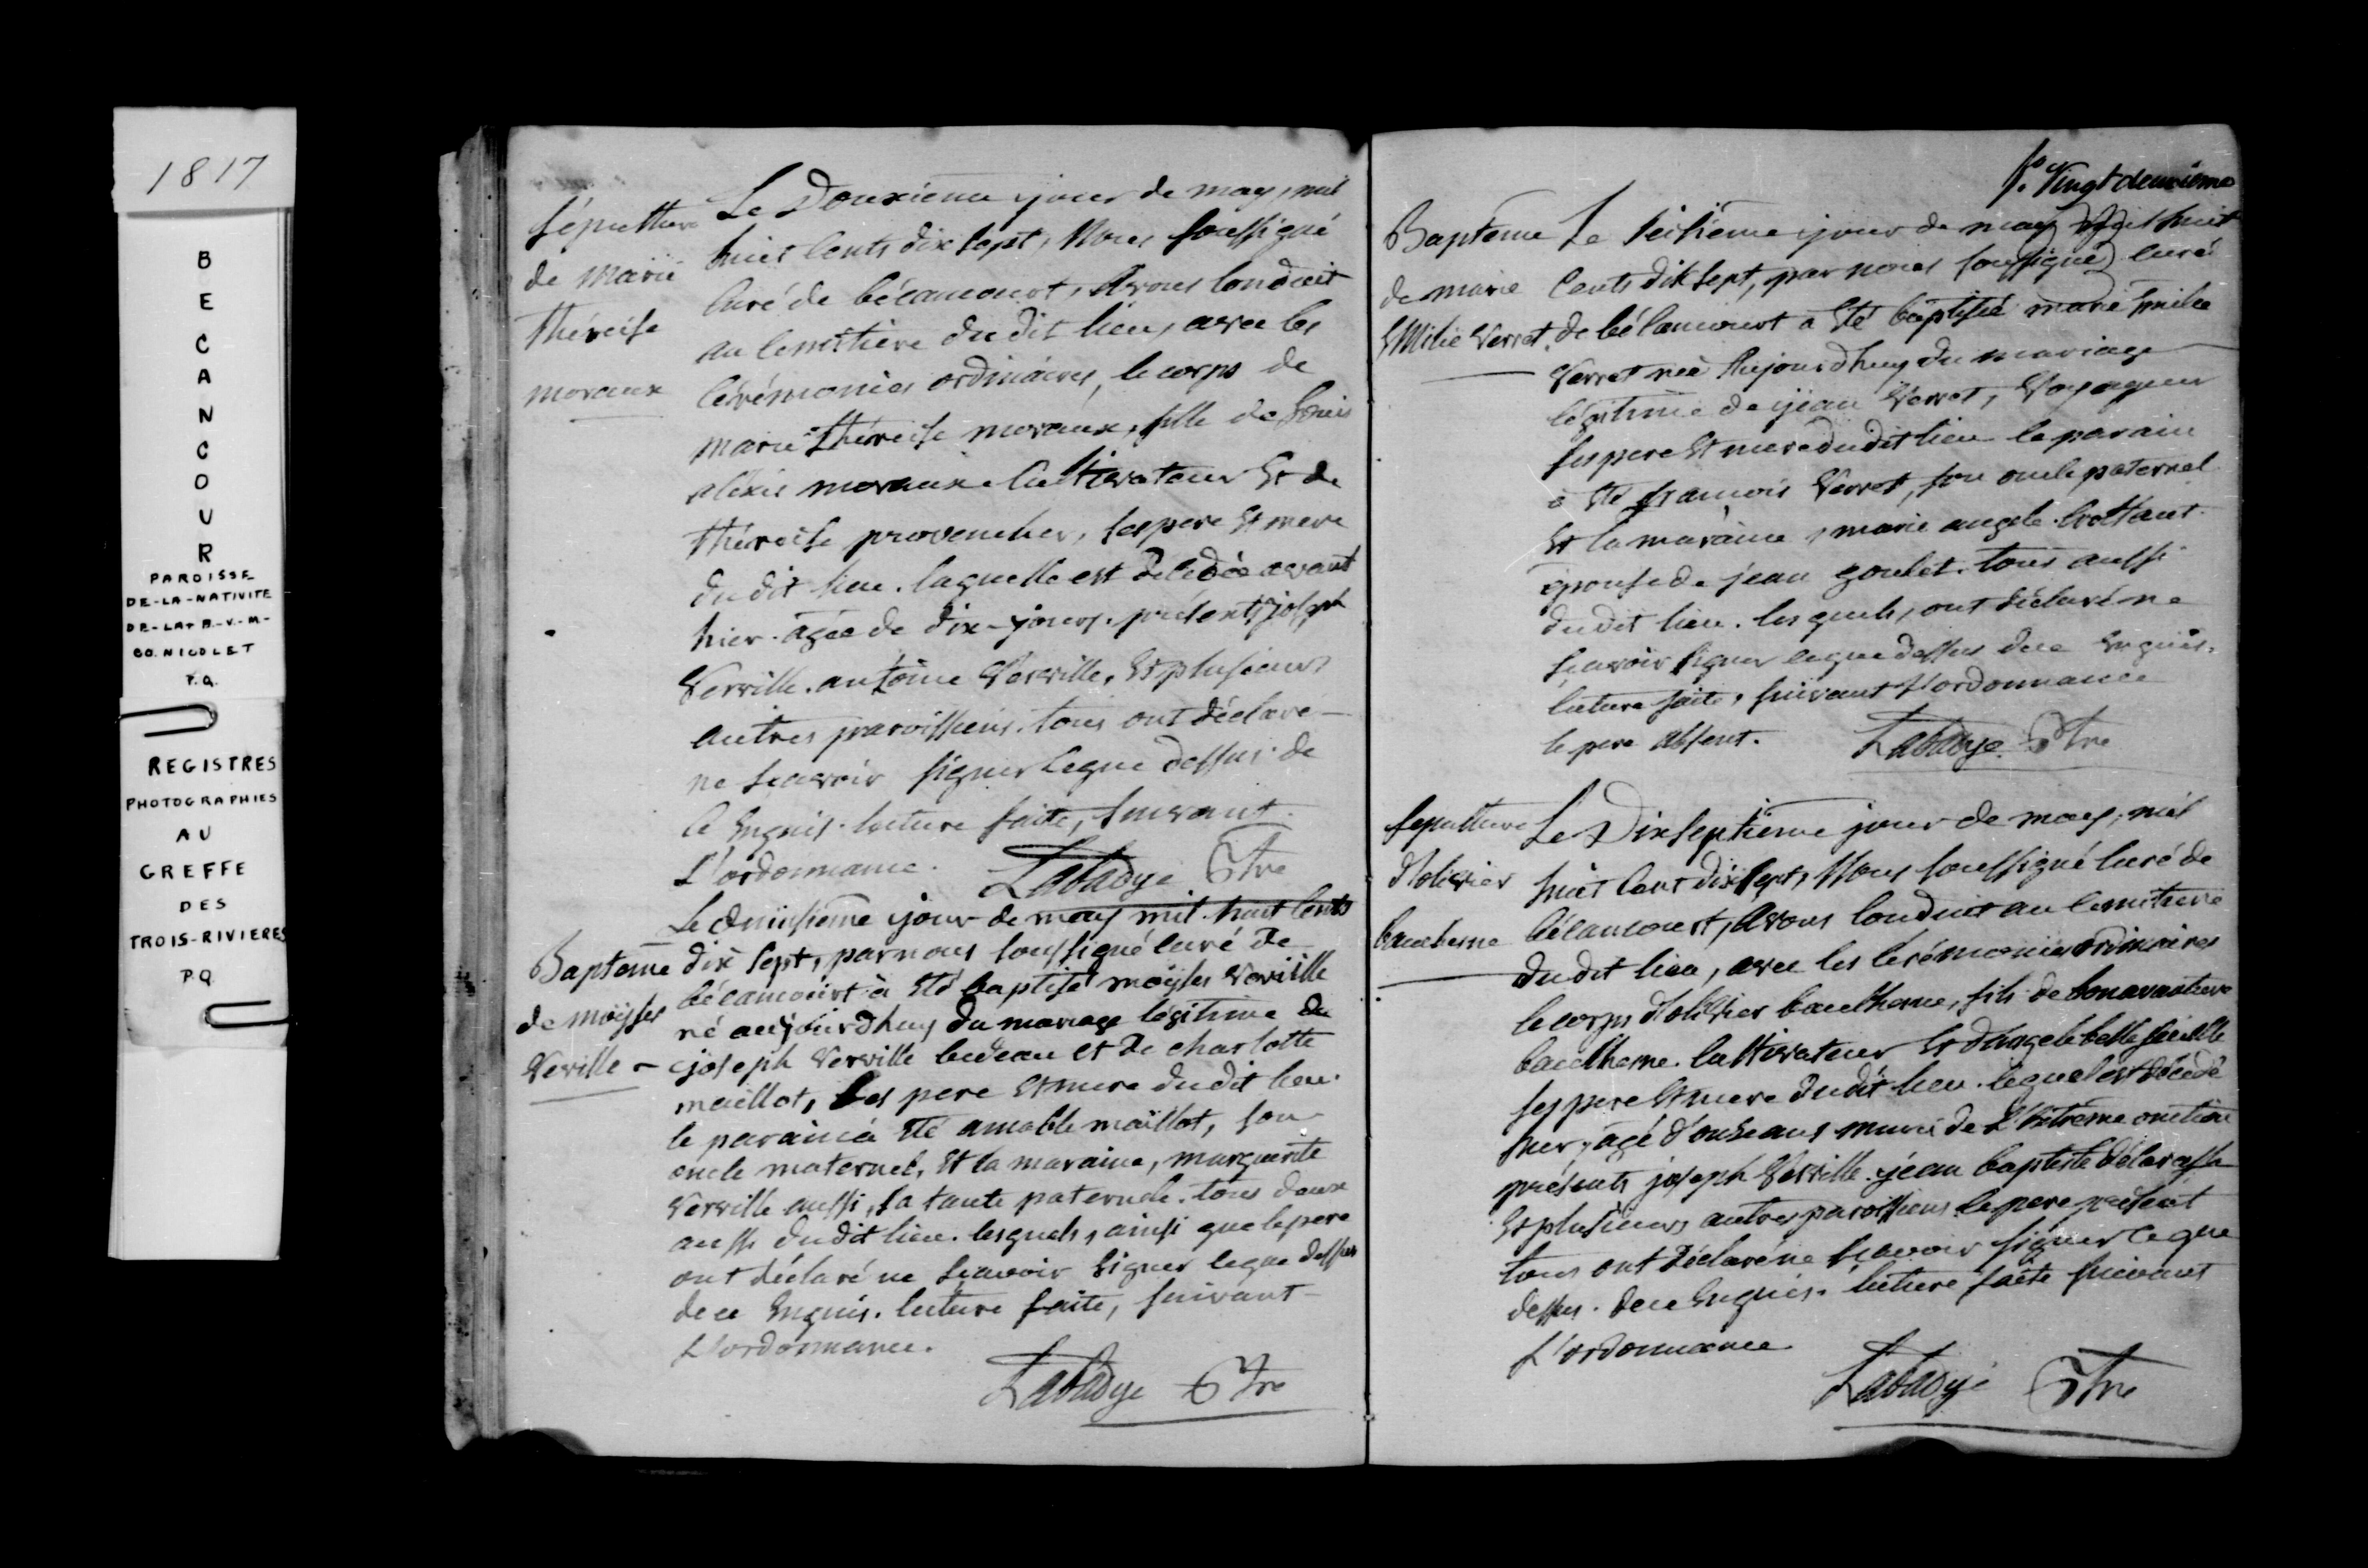 1817
B
E
C
A
N
C
O
U
R
PAROISSE
DE-LA-NATIVITE
DE-LA-B-V-M-
CO. NICOLET
P.Q.
REGISTRES
PHOTOGRAPHIES
AU
GREFFE
DES
TROIS-RIVIERES
P.Q.
Sépulture
de marie
théreise
moraux
Le Douxieme jour de may, mil
huit Cents dix sept, Nous soussigné
Curé de bécancourt, Avons Conduit
au Cemitiere du dit lieu, avec les
Cérémonies ordinaires, le corps de
marie théreise moraux, fille de Louis
aléxis moraux Cultivateur Et de
théreise provencher, ses pere Et mere
du dit lieu. laquelle est décédée avant
hier. âgée de dix-jours. présents joseph
Verville. antoine Verville, Et plusieurs
autres paroissiens. tous ont déclaré
ne sçavoir signer ce que dessus. de
ce Enquis. lecture faite, suivant
L'ordonnance. Labadye Ptre
Bapteme
de moÿses
Verville
Le Quinsieme jour de may mil huit Cents
dix sept, par nous soussigné curé de
bécancourt à Eté baptisé moÿses Verville
né aujourdhuy du mariage légitime de
joseph Verville bedeau et de charlotte
maillot, Ses pere Et mere du dit lieu.
le parain à Eté amable maillot, son
oncle maternel, Et la maraine, marguerite
Verville aussi, sa tante paternele. tous deux
aussi du dit lieu. lesquels, ainsi que le pere
ont déclaré ne sçavoir signer ce que dessus
de ce Enquis. lecture faite, suivant
L'ordonnance.
Labadye Ptre
f. Vingt deuxieme
Bapteme
de marie
EMilie Verret.
Le seisiéme jour de may mil huit
Cents dix sept, par nous soussigné curé
de bécancourt a Eté baptisée marie Emilie
Verret née Aujourdhuy du mariage
légitime de jean Verret, Voyageur
ses pere Et mere du dit lieu le parain
à Eté francois Verret, son oncle paternel
Et la maraine, marie angele
épouse de jean goulet. tous aussi
du dit lieu. lesquels, ont déclaré ne
sçavoir signer ce que dessus de ce Enquis.
lecture faite, suivant L'ordonnance
le pere absent. Labadye Ptre
Sepulture
d'olivier
Le Dixseptieme jour de may, mil
huit Cent dix sept, Nous soussigné Curé de
bécancourt, Avons Conduit au Cemitiere
du dit lieu, avec les Cérémonies ordinaires
le corps d'olivier , fils de bonavanture
Cultivateur Et d'angele bellefeuille
ses pere Et mere du dit lieu. lequel est décédé
hier, âgé d'onse ans muni de L'Extreme onction
présents joseph Verville. jean baptiste
Et plusieurs autres paroissiens le pere présent
tous ont déclaré ne sçavoir signer ce que
dessus. de ce Enquis. lecture faite suivant
L'ordonnance
Labadye Ptre